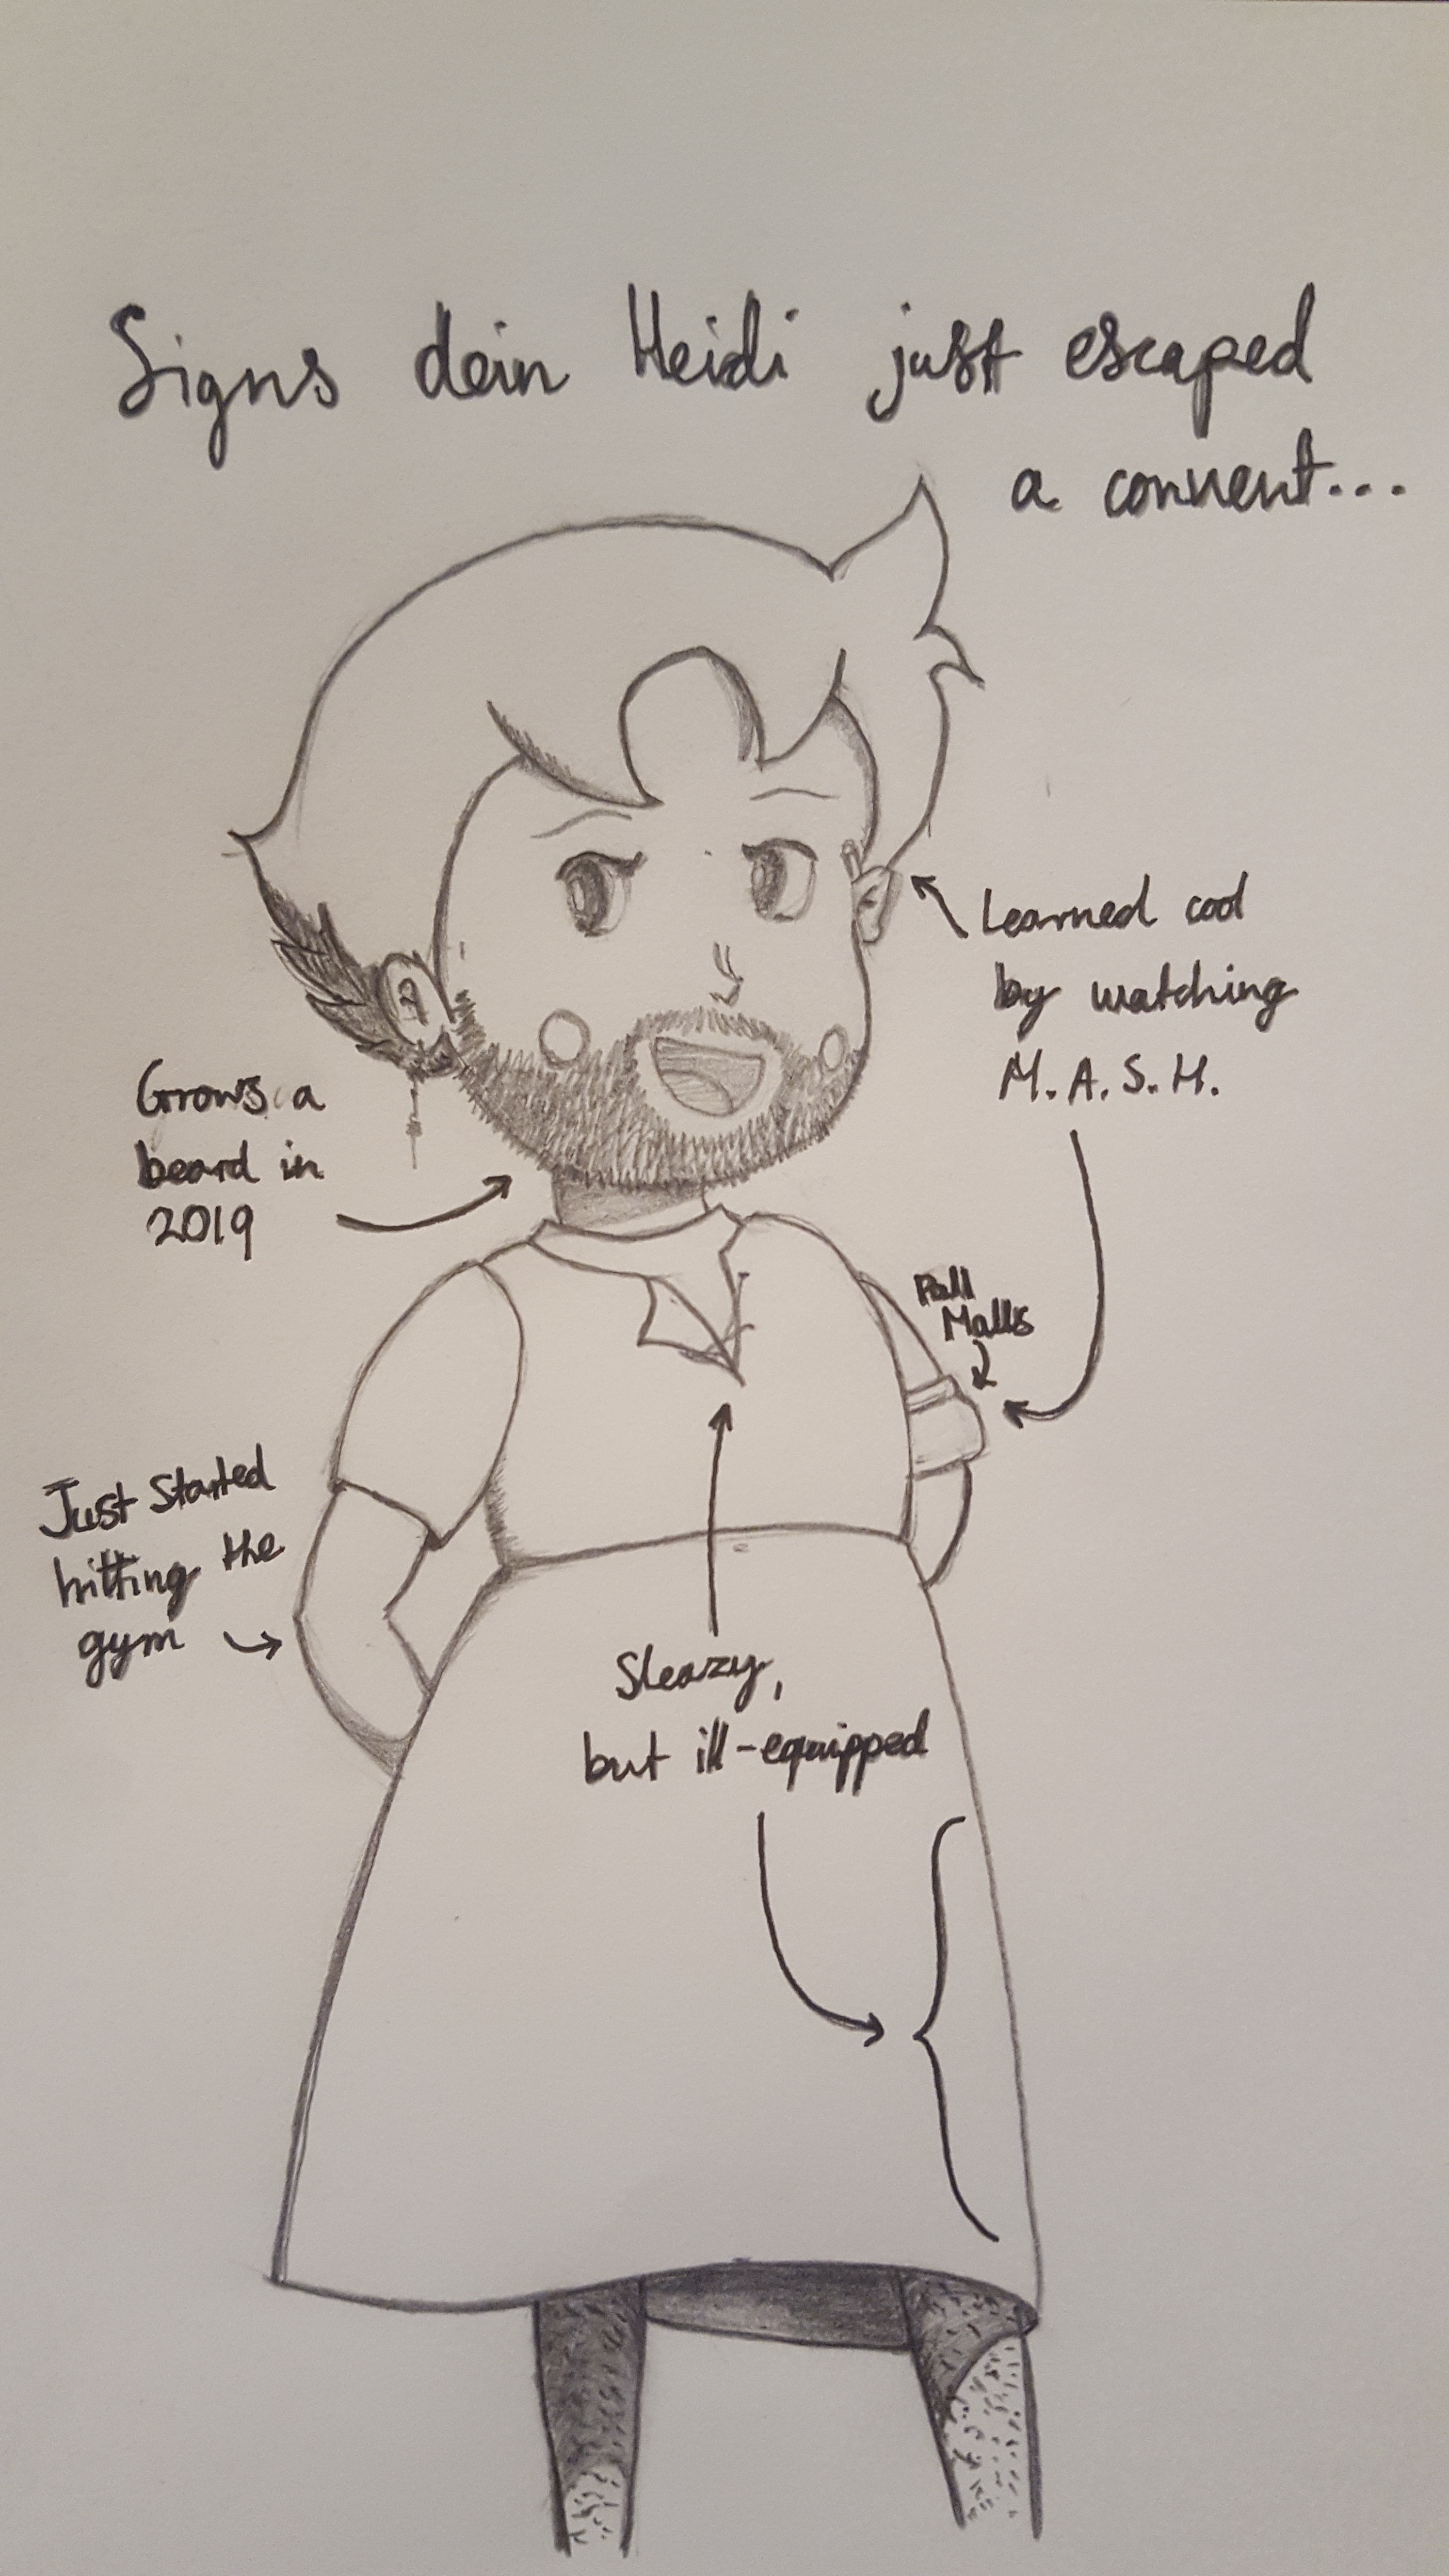 Signs dein Heidi just escaped
a convent...
Learned cool
by watching
M.A.S.H.
Grows a
beard in
2019
Pall
Malls
Just started
hitting the
gym
Sleazy,
but ill-equipped